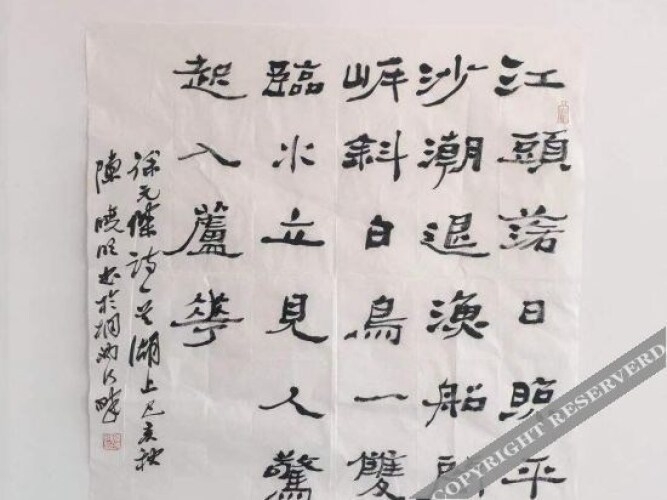 江頭落日照平
沙潮退漁船
岸斜白鳥一雙
臨水立見人驚
起入蘆花
徐元傑詩湖上己亥秋
陳曉明書於桐汭河畔
COPYRIGHT RESERVERD